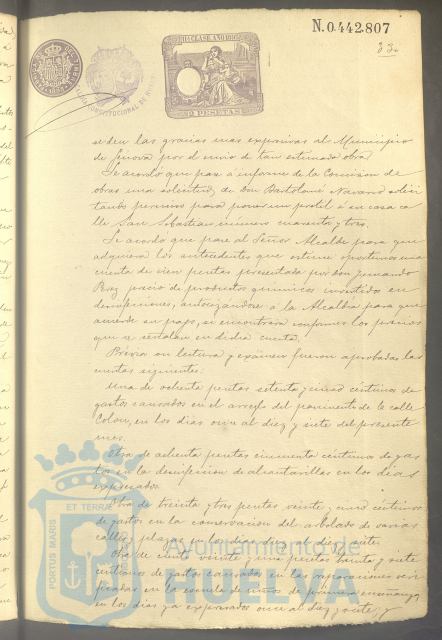 N.0.442.807
33
se den las gracias mas expresivas al Municipio
de Génova por el envio de tan estimada obra
Se acordó que pase á informe de la Comision de
obras una solicitud de Don Bartolomé Navarro solici
tando permiso para poner un pretil á su casa ca
lle San Sebastian número cuarenta y tres.
Se acordó que pase al Señor Alcalde para que
adquiera los antecedentes que estime oportunos una
cuenta de cien pesetas presentada por Don Fernando
precio de productos quimicos invertidos en
desinfecciones, autorizandose á la Alcaldia para que
acuerde su pago, si encontrara conformes los precios
que se señalan en dicha cuenta.
Prévia su lectura y exámen fueron aprobadas las
cuentas siguientes:
Una de ochenta pesetas setenta y cinco céntimos de
gastos causados en el arreglo del pavimento de la calle
Colon, en los dias once al diez y siete del presente
mes.
Otra de ochenta pesetas cincuenta céntimos de gas
tos en la desinfeccion de alcantarillas en los dias
expresados
Otra de treinta y tres pesetas veinte y cinco céntimos
de gastos en la conservacion del arbolado de varias
calles y plazas en los dias once al diez y siete
Otra de ciento veinte y una pesetas treinta y siete
céntimos de gastos causados en las reparaciones veri
ficadas en la escuela de niños de primera enseñanza
en los dias ya expresados once al diez y siete, y
PORTUS MARIS
ET TERRÆ
Ayuntamiento de